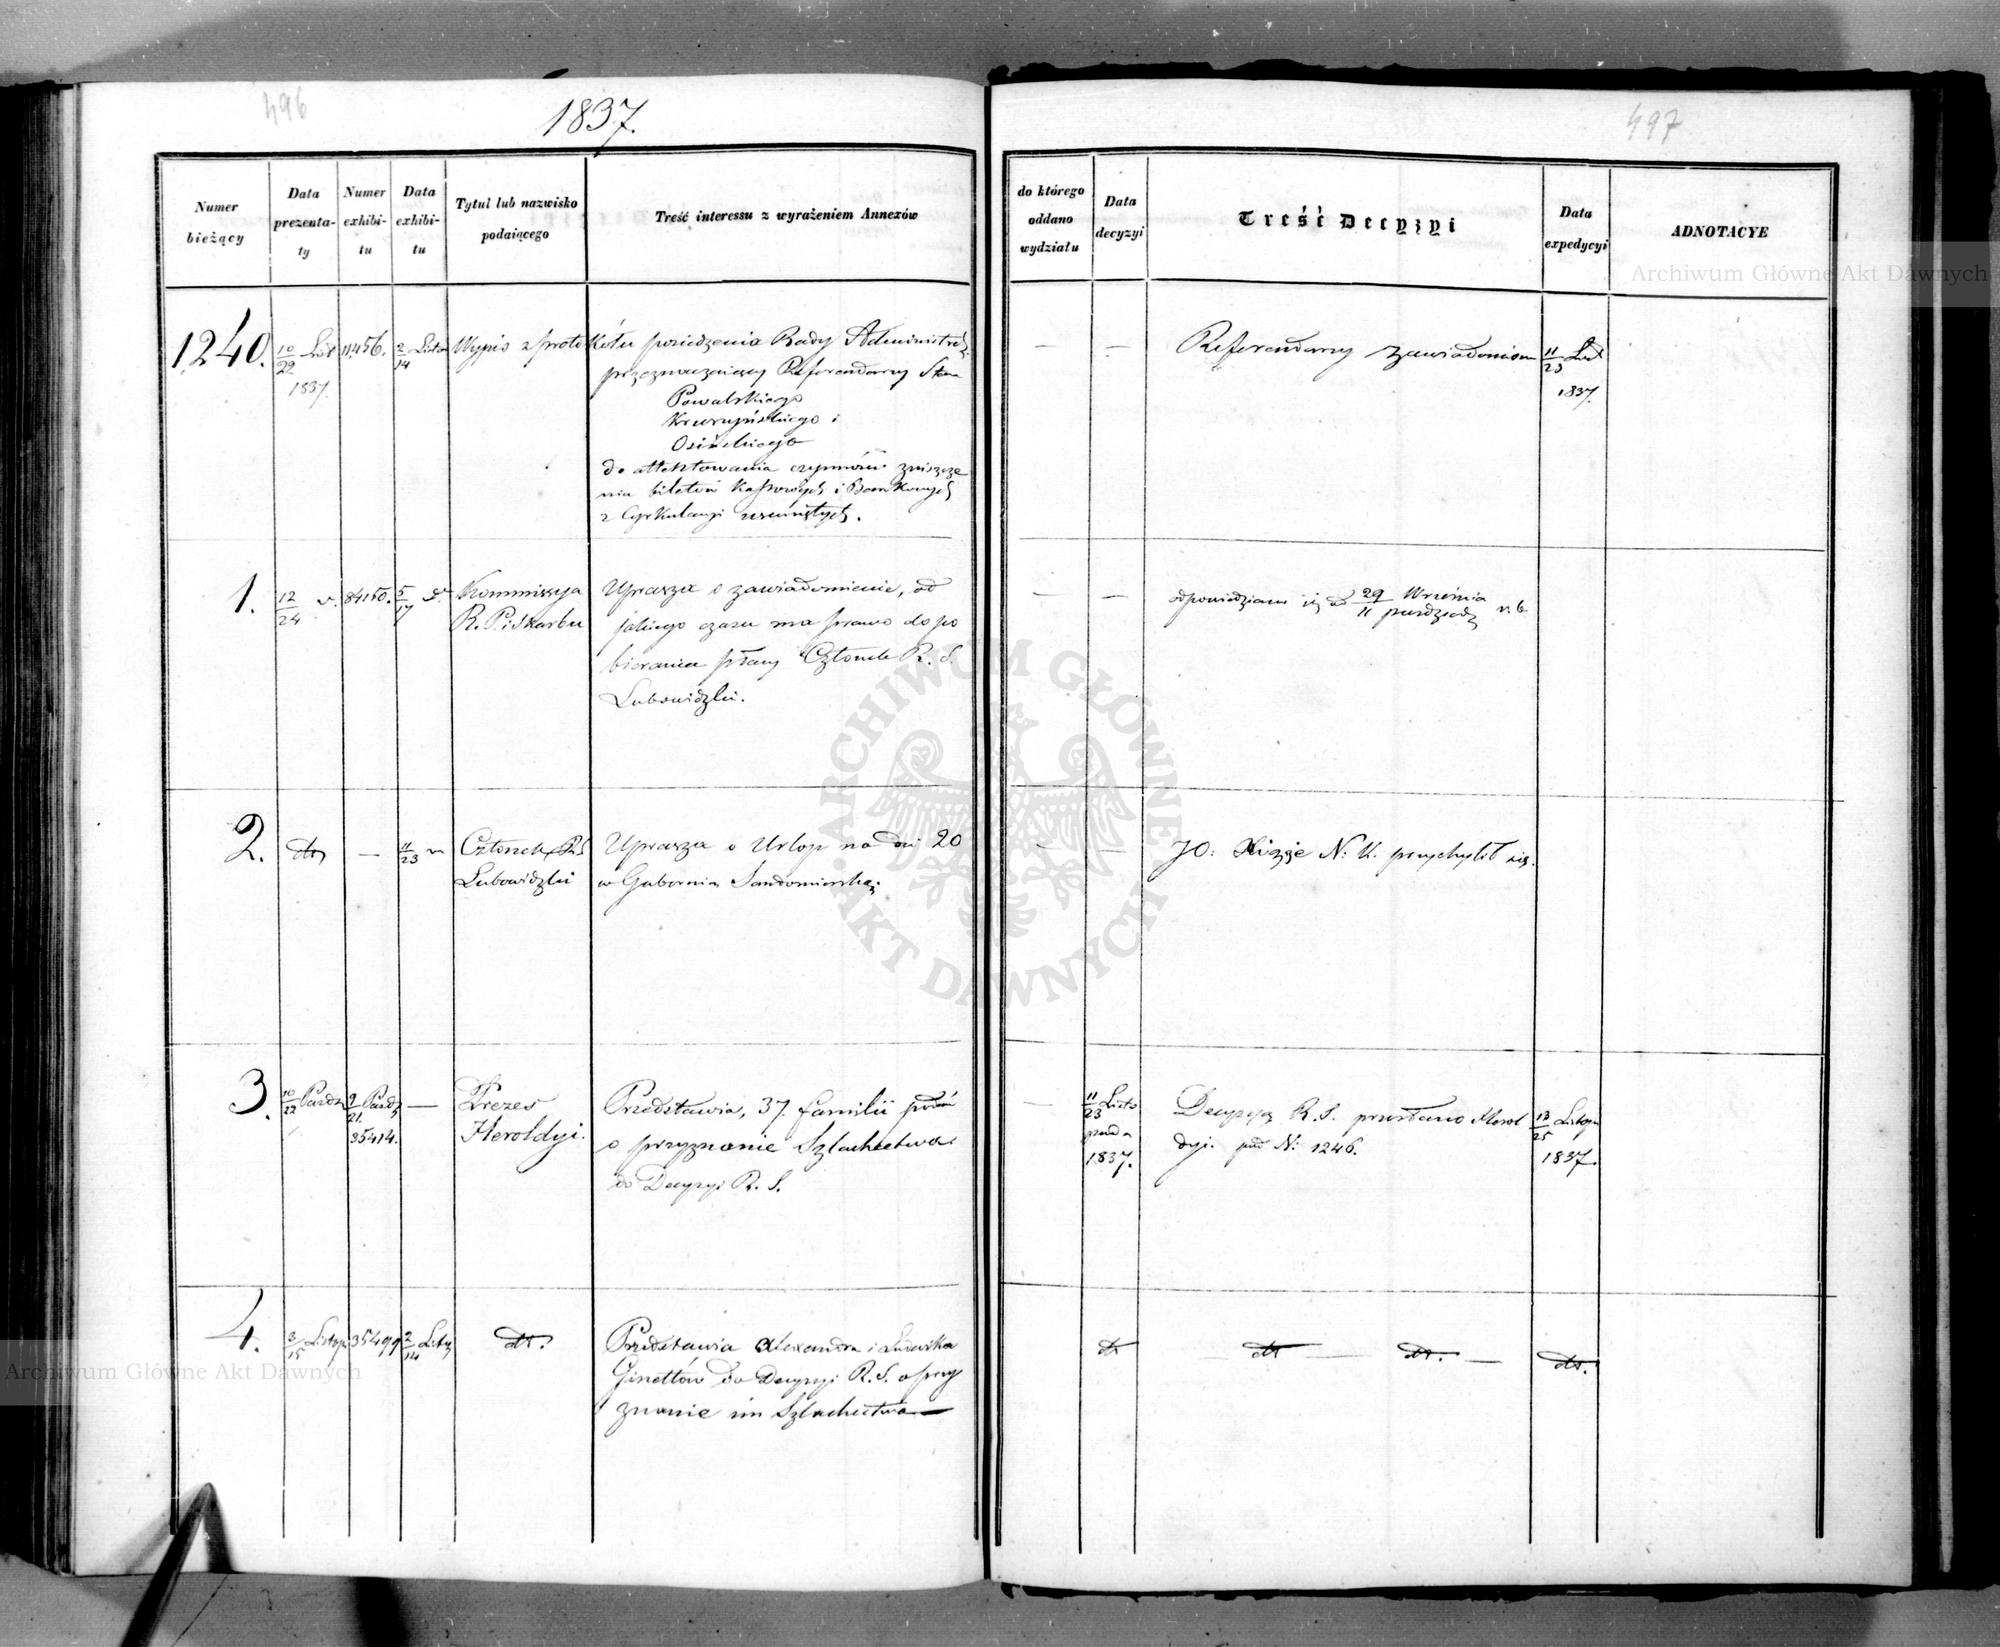 496
1837.
Numer bieżący
Data prezenta-ty
Numer exhibi-tu
Data exhibi-tu
Tytuł lub nazwisko podaiącego
Treść interessu z wyrażeniem Annexów
1240. 10/22 List 1837. 11,456. 2/14 Listo Wypis z protokółu posiedzenia Rady Administr:
przeznaczaiący Referendarzy Stanu
Powalskiego
i
Osińskiego
do attentowania czynności zniszcze
nia biletów Kassowych i Bankowych
z Cyrkulacyi usuniętych.
1. 12/24 84150. 5/17 Kommissya
R. P. i Skarbu
Uprasza o zawiadomienie, od
jakiego czasu ma prawo do po
bierania płacy Członek R. S.
Lubowidzki.
2. dto — 11/23 Członek R. S.
Lubowidzki
Uprasza o Urlop na dni 20
w Gubernią Sandomierską.
3. 10/22 Paźdz 9/21 Paźdz 35414. — Prezes
Heroldyi.
Przedstawia, 37. familii
o przyznanie Szlachectwa
do Decyzyi R. S.
4. 3/15 Listop 35499 2/14 Listo dto.
Przedstawia Alexandra i Ludwika
Ginettów do Decyzyi R. S. o przy
znanie im Szlachectwa—
497
do którego oddano wydziału
Data decyzyi
Treść Decyzyi
Data expedycyi
ADNOTACYE
— — Referendarzy zawiadomiono 11/23 List 1837.
— — odpowiedziano się 29 Września
11 Października r. b.
— — JO: Xiąże N: K. przychylił się.
— 11/23 Listo
pada
1837.
Decyzyą R. S. przesłano Herol
dyi. pod N: 1246.
13/25 Listop
1837.
dto — dto — dto. — dto.
Archiwum Główne Akt Dawnych
ARCHIWUM GŁÓWNE AKT DAWNYCH
Archiwum Główne Akt Dawnych